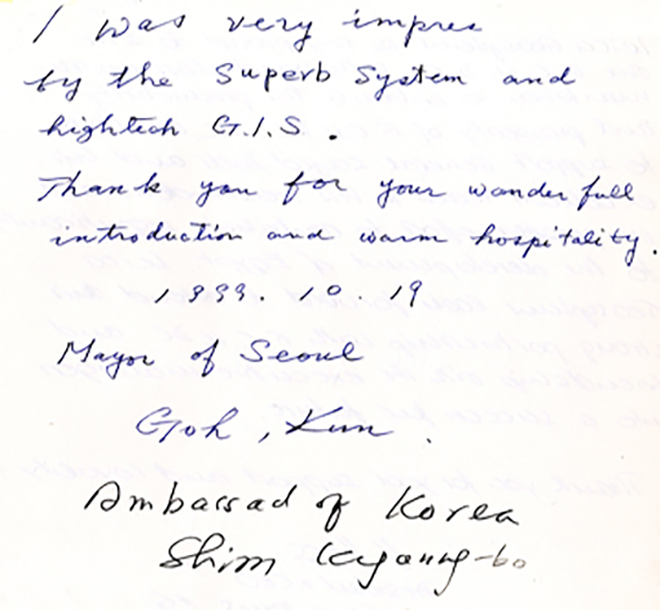 I was very impres
by the superb system and
hightech G.I.S.
Thank you for your wanderfull
introduction and warm hospitality.
1999. 10. 19
Mayor of Seoul
Goh, Kun.
Ambassad of Korea
Shim Kyoung-bo